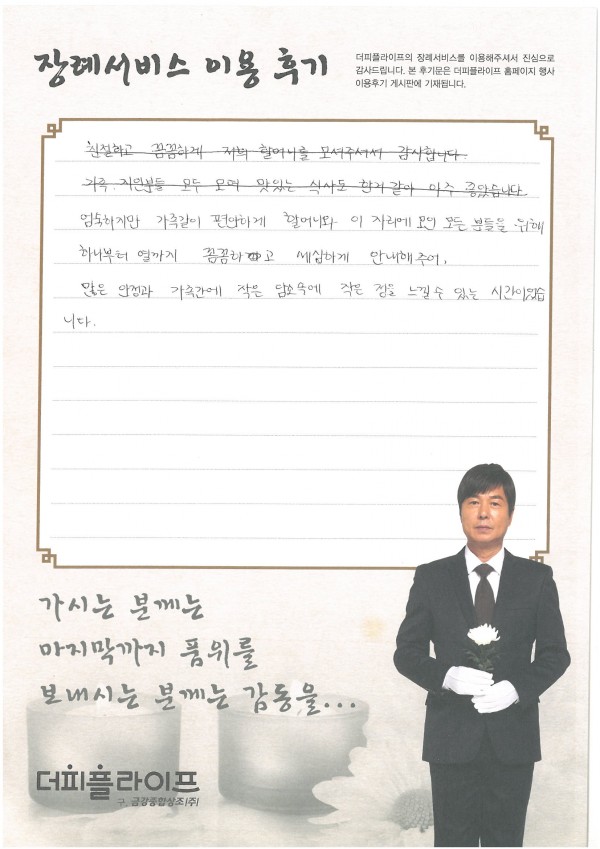 장례서비스 이용 후기
더피플라이프의 장례서비스를 이용해주셔서 진심으로
감사드립니다. 본 후기문은 더피플라이프 홈페이지 행사
이용후기 게시판에 기재됩니다.
친절하고 꼼꼼하게 저희 할머니를 모셔주셔서 감사합니다.
가족. 지인분들 모두 모여 맛있는 식사도 한거 같아 아주 좋았습니다.
엄숙하지만 가족같이 편안하게 할머니와 이 자리에 모인 모든 분들을 위해
하나부터 열까지 꼼꼼하고 세심하게 안내해주어,
많은 안정과 가족간에 작은 담소속에 작은 정을 느낄수 있는 시간이었습
니다.
가시는 분께는
마지막까지 품위를
보내시는 분께는 감동을...
더피플라이프
구. 금강종합상조(주)